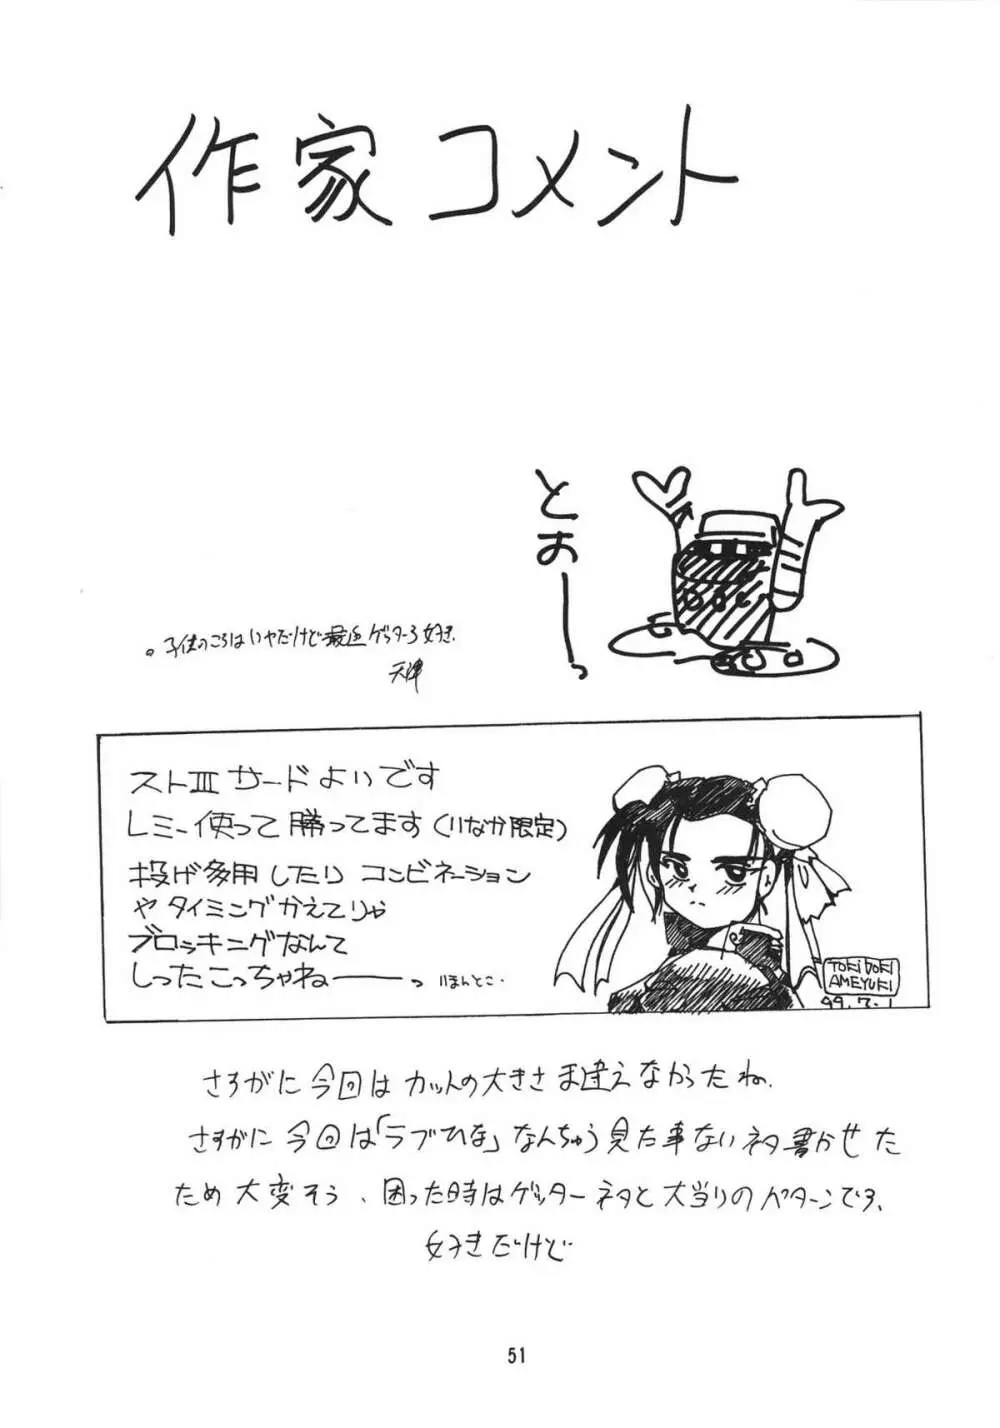 作家コメント
とおーっ
。子供のころはいやだけど最近ゲッター3好き。
天津
ストⅢサードよいです
レミー使って勝ってます（いなか限定）
投げ多用したり コンビネーション
や タイミングかえてりゃ
ブロッキングなんて
しったこっちゃねーーっ いほんとこ・
TOKIDOKI
AMEYUKI
99.7.1
さすがに今回はカットの大きさま違えなかったね、
さすがに今回は「ラブひな」なんちゅう見た事ないネタ書かせた
ため大変そう、困った時はゲッターネタと大当りのパターンです、
好きだけど
51